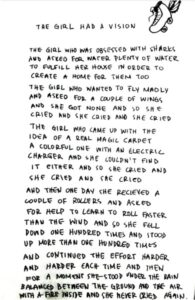 THE GIRL HAD A VISION
THE GIRL WHO WAS OBSESSED WITH SHARKS
AND ASKED FOR WATER PLENTY OF WATER
TO FULFILL HER HOUSE IN ORDER TO
CREATE A HOME FOR THEM TOO
THE GIRL WHO WANTED TO FLY MADLY
AND ASKED FOR A COUPLE OF WINGS
AND SHE GOT NONE AND SO SHE
CRIED AND SHE CRIED AND SHE CRIED
THE GIRL WHO CAME UP WITH THE
IDEA OF A REAL MAGIC CARPET
A COLORFUL ONE WITH AN ELECTRIC
CHARGER AND SHE COULDN'T FIND
IT EITHER AND SO SHE CRIED AND
SHE CRIED AND SHE CRIED
AND THEN ONE DAY SHE RECIEVED A
COUPLE OF ROLLERS AND ASKED
FOR HELP TO LEARN TO ROLL FASTER
THAN THE WIND AND SO SHE FELL
DOWN ONE HUNDRED TIMES AND STOOD
UP MORE THAN ONE HUNDRED TIMES
AND CONTINUED THE EFFORT HARDER
AND HARDER EACH TIME AND THEN
FOR A MOMENT SHE STOOD UNDER THE RAIN
BALANCED BETWEEN THE GROUND AND THE AIR
WITH A FIRE INSIDE AND SHE NEVER CRIED AGAIN